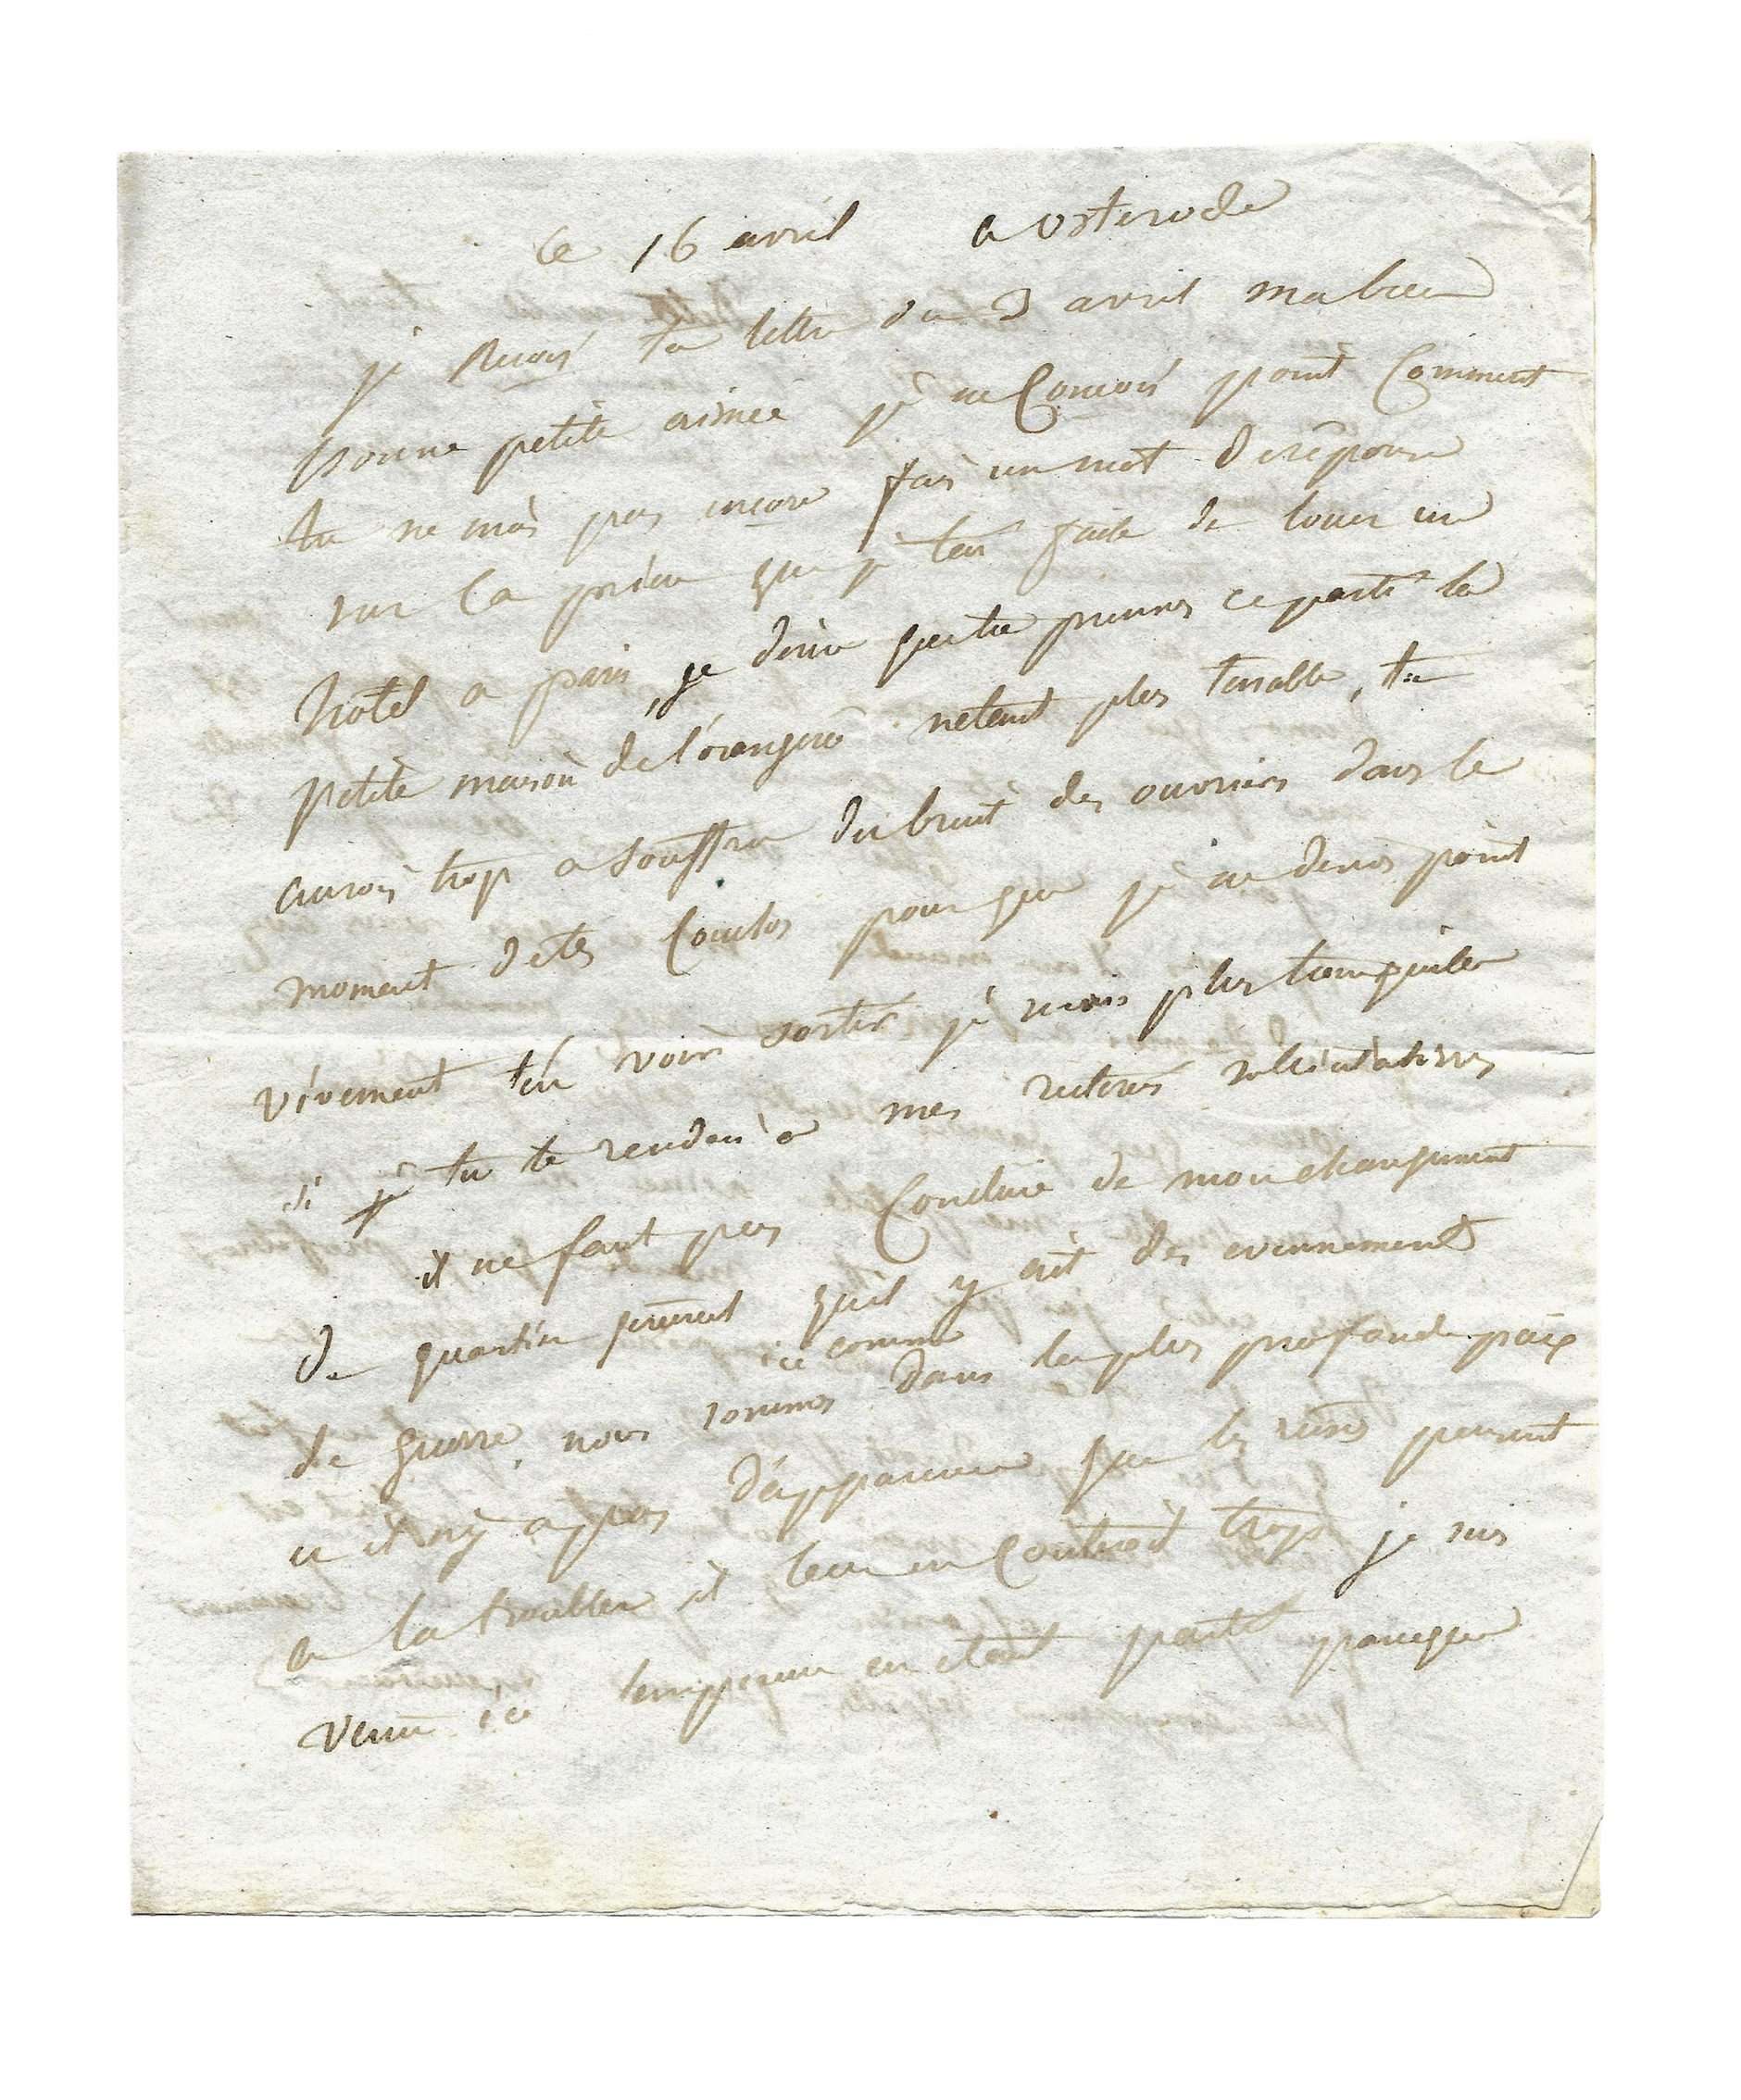 ce 16 avril a osterode
je recois ta lettre du 3 avril ma bien
bonne petite aimée je ne concois point comment
tu ne mas pas encore fais un mot de réponse
sur la prière que je tai faite de louer un
hotel a paris, je desire que tu prennes ce parti la
petite maison de l'orangerie netant plus tenable, tu
aurois trop a souffrir du bruit des ouvriers dans le
moment de tes couches pour que je ne desire point
vivement ten voir sortir je serais plus tranquille
si je tu te rendais a mes reiterés sollicitations
il ne faut pas conclure de mon changement
de quartier general quil y ait des evennements
de guerre, nous sommes ici comme dans la plus profonde paix
et il ny a pas d'apparence que les russes pensent
a la troubler il leur en couteroit trop je suis
venu ici lempereur en etant parti parceque